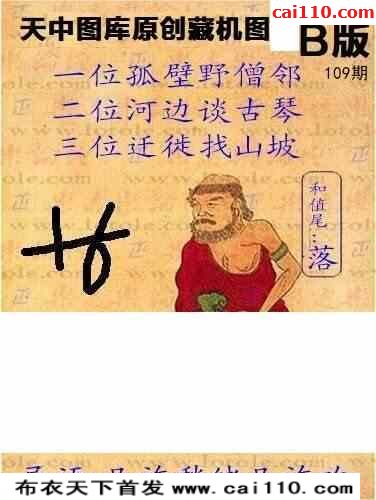 cai110.com
天中图库原创藏机图
B版
109期
一位孤壁野僧邻
二位河边谈古琴
三位迁徙找山坡
和值尾:落
布衣天下首发 www.cai110.com